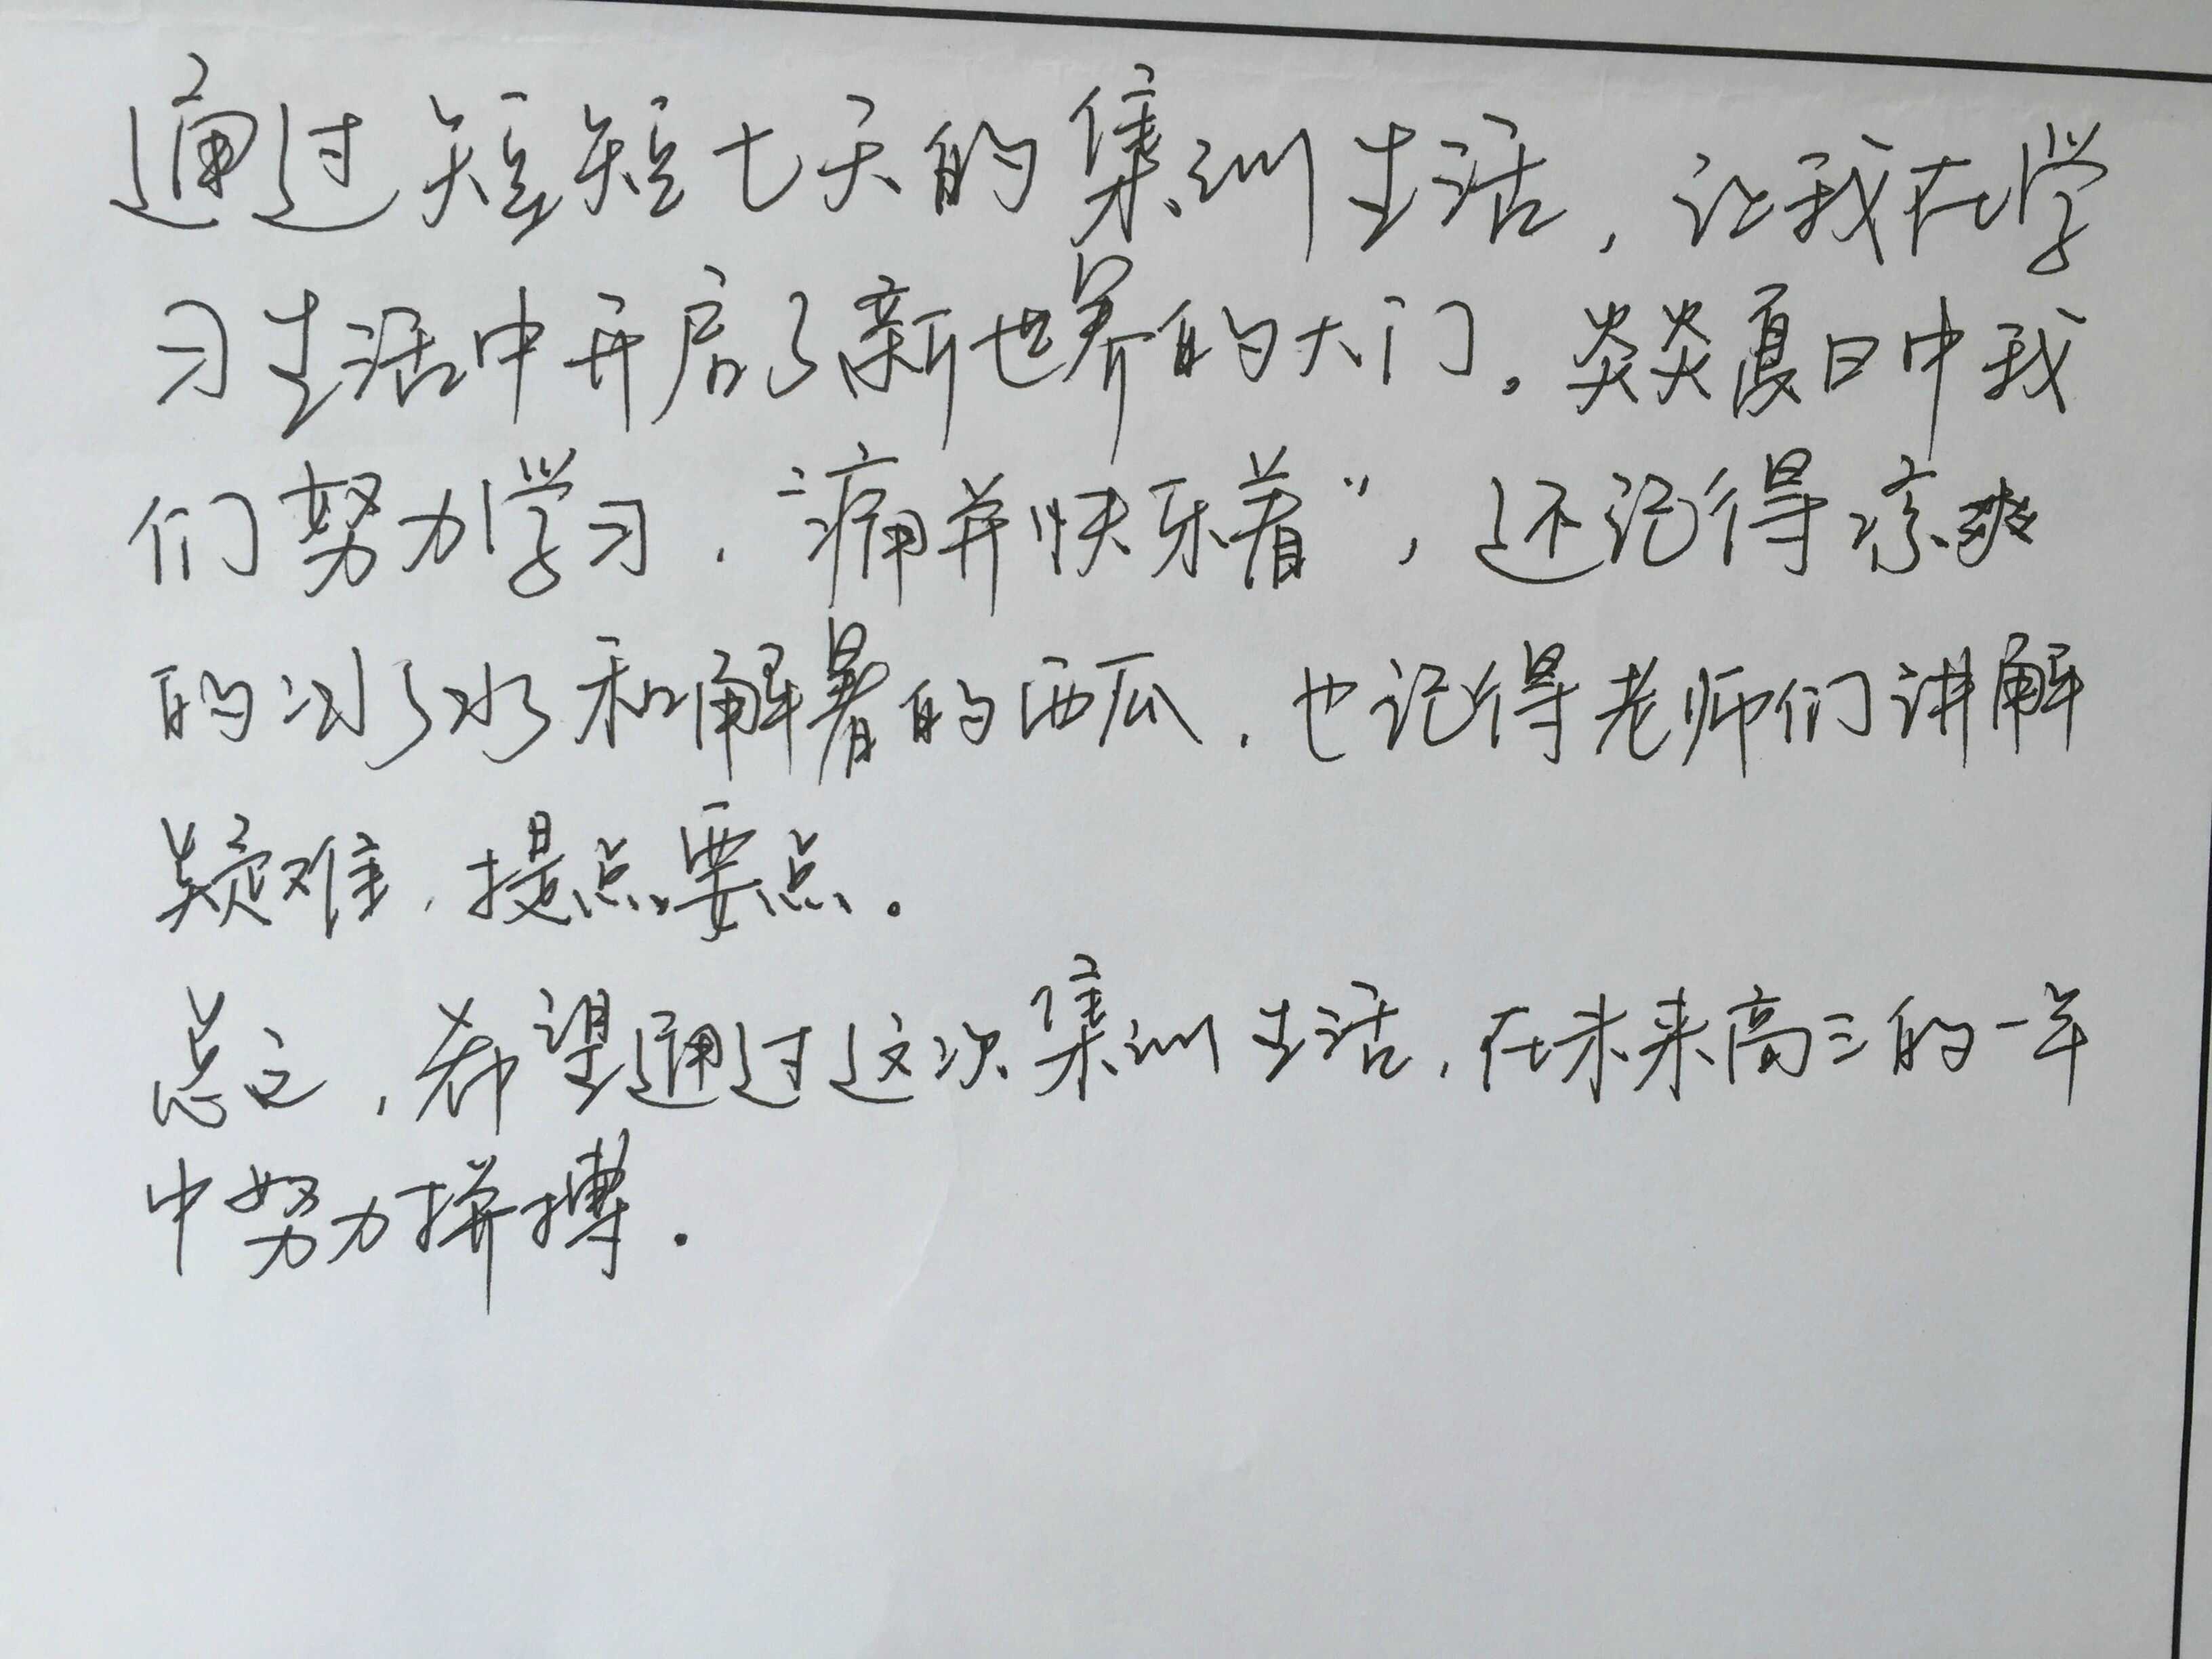 通过短短七天的集训生活，让我在学
习生活中开启了新世界的大门。炎炎夏日中我
们努力学习，“痛并快乐着”，还记得凉爽
的冰水和解暑的西瓜，也记得老师们讲解
疑难，提点要点。
总之，希望通过这次集训生活，在未来高三的一年
中努力拼搏.